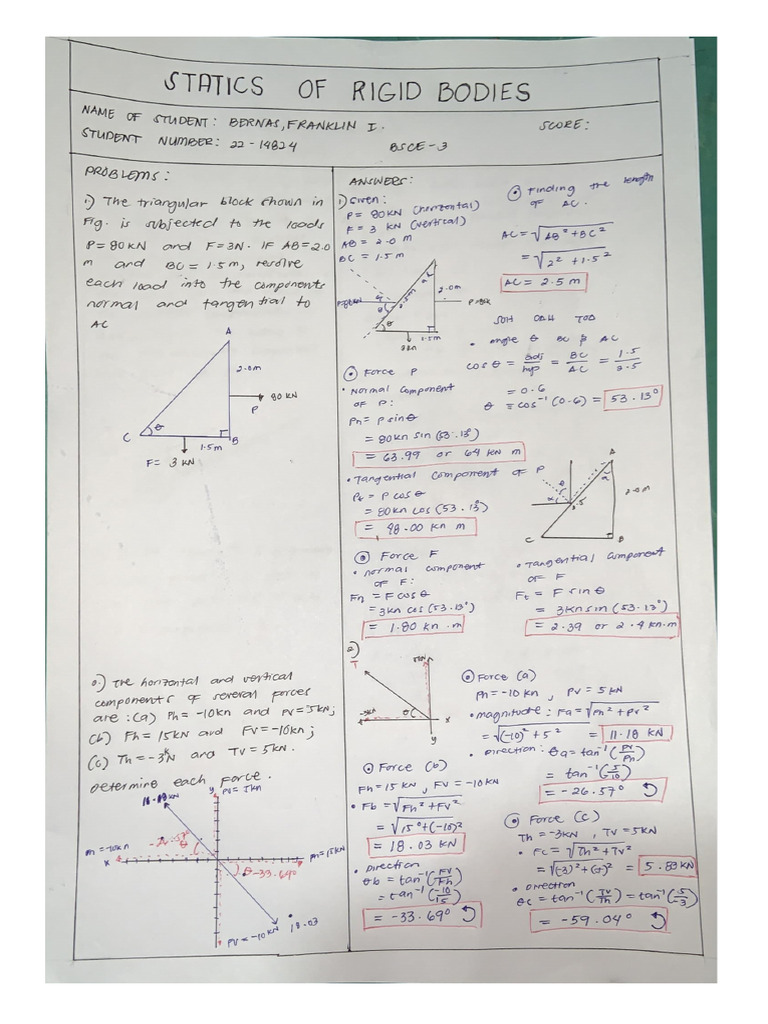 STATICS OF RIGID BODIES
NAME OF STUDENT: BERNAS, FRANKLIN I.
SCORE:
STUDENT NUMBER: 22-14824
BSCE-3
PROBLEMS:
1.) The triangular block shown in
Fig. is subjected to the loads
P=80KN and F=3N. IF AB=2.0
m and BC = 1.5m, resolve
each load into the components
normal and tangential to
AC
A
2.0m
80 KN
P
C
θ
B
1.5m
F= 3 KN
ANSWERS:
1) Given:
P= 80KN (horizontal)
F= 3 KN (vertical)
AB = 2.0 m
BC = 1.5m
Finding the length
OF AC.
AC=√AB²+BC²
=√2²+1.5²
AC= 2.5 m
2.5m
2.0m
θ
1.5m
SOH CAH TOA
• angle θ BC & AC
cos θ = adj/hyp = BC/AC = 1.5/2.5
= 0.6
θ = cos⁻¹ (0.6) = 53.13°
Force P
• Normal Component
OF P:
Pn= P sinθ
= 80kn sin (53.13°)
= 63.99 or 64 KN m
• Tangential Component OF P
Pt = P cosθ
= 80KN cos (53.13°)
= 48.00 kn m
A
2.0m
2.5
C
B
Force F
• Normal component
OF F:
Fn = F cosθ
= 3kn cos (53.13°)
= 1.80 kn .m
• Tangential Component
OF F
Ft = F sin θ
= 3knsin (53.13°)
= 2.39 or 2.4 kn.m
2.) The horizontal and vertical
components of several forces
are: (a) Ph= -10kn and Pv=5kN;
(b) Fh = 15KN and Fv=-10kn;
(c) Th= -3N and TV= 5KN.
Determine each force.
y
Pv= 5kn
11.18 KN
Ph=-10kn
-26.57°
θ
x
Ph=15KN
θ-33.69°
18.03
PV= -10KN
2)
θ
x
y
Force (a)
Ph= -10 kn , Pv= 5kN
• magnitude: Fa=√Ph²+Pv²
=√(-10)²+5² = 11.18 KN
• Direction: θa=tan⁻¹(Pv/Ph)
= tan⁻¹(5/-10)
= -26.57°
Force (b)
Fh=15 KN, FV = -10KN
• Fb =√Fh²+Fv²
=√15²+(-10)²
= 18.03 KN
• Direction
θb = tan⁻¹(Fv/Fh)
= tan⁻¹(-10/15)
= -33.69°
Force (c)
Th= -3KN , Tv= 5KN
• Fc =√Th²+Tv²
=√(-3)²+(5)² = 5.83KN
• Direction
θc = tan⁻¹(Tv/Th) = tan⁻¹(5/-3)
= -59.04°